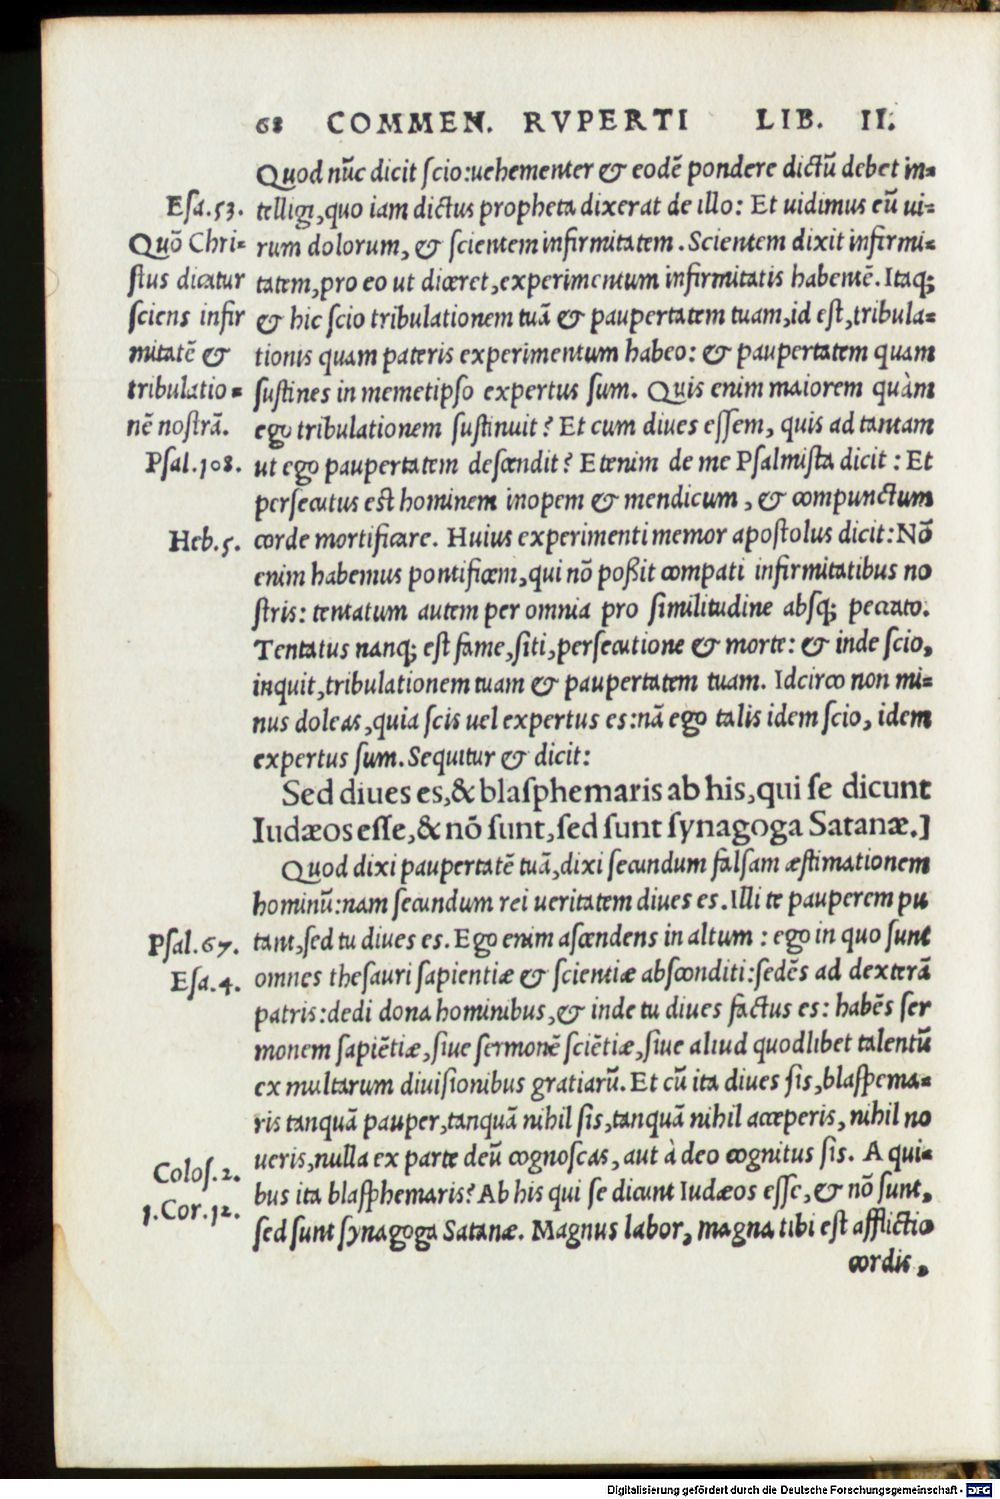 68 COMMEN. RVPERTI LIB. II.
Quod nūc dicit ſcio:uehementer & eodē pondere dictū debet in=
telligi,quo iam dictus propheta dixerat de illo: Et uidimus eū ui=
rum dolorum, & ſcientem infirmitatem. Scientem dixit infirmi=
tatem,pro eo ut diceret,experimentum infirmitatis habentē. Itaq;
& hic ſcio tribulationem tuā & paupertatem tuam,id eſt,tribula=
tionis quam pateris experimentum habeo: & paupertatem quam
ſuſtines in memetipſo expertus ſum. Quis enim maiorem quàm
ego tribulationem ſuſtinuit? Et cum diues eſſem, quis ad tantam
ut ego paupertatem deſcendit? Etenim de me Pſalmiſta dicit: Et
perſecutus eſt hominem inopem & mendicum, & compunctum
corde mortificare. Huius experimenti memor apoſtolus dicit: Nō
enim habemus pontificem,qui nō poßit compati infirmitatibus no
ſtris: tentatum autem per omnia pro ſimilitudine abſq; peccato.
Tentatus nanq; eſt fame,ſiti,perſecutione & morte: & inde ſcio,
inquit,tribulationem tuam & paupertatem tuam. Idcirco non mi=
nus doleas,quia ſcis uel expertus es:nā ego talis idem ſcio, idem
expertus ſum. Sequitur & dicit:
Sed diues es,& blaſphemaris ab his,qui ſe dicunt
Iudæos eſſe,& nō ſunt,ſed ſunt ſynagoga Satanæ.]
Quod dixi paupertatē tuā,dixi ſecundum falſam æſtimationem
hominū:nam ſecundum rei ueritatem diues es. Illi te pauperem pu
tant,ſed tu diues es. Ego enim aſcendens in altum: ego in quo ſunt
omnes theſauri ſapientiæ & ſcientiæ abſconditi:ſedēs ad dexterā
patris:dedi dona hominibus,& inde tu diues factus es: habēs ſer
monem ſapiētiæ,ſiue ſermonē ſciētiæ,ſiue aliud quodlibet talentū
ex multarum diuiſionibus gratiarū. Et cū ita diues ſis,blaſpema=
ris tanquā pauper,tanquā nihil ſis,tanquā nihil acceperis, nihil no
ueris,nulla ex parte deū cognoſcas, aut à deo cognitus ſis. A qui=
bus ita blaſphemaris? Ab his qui ſe dicunt Iudæos eſſe,& nō ſunt,
ſed ſunt ſynagoga Satanæ. Magnus labor, magna tibi eſt afflictio
cordis,
Eſa.53.
Quō Chri=
ſtus dicatur
ſciens infir
mitatē &
tribulatio=
nē noſtrā.
Pſal.108.
Heb.5.
Pſal.67.
Eſa.4.
Coloſ.2.
1.Cor.12.
Digitalisierung gefördert durch die Deutsche Forschungsgemeinschaft - DFG